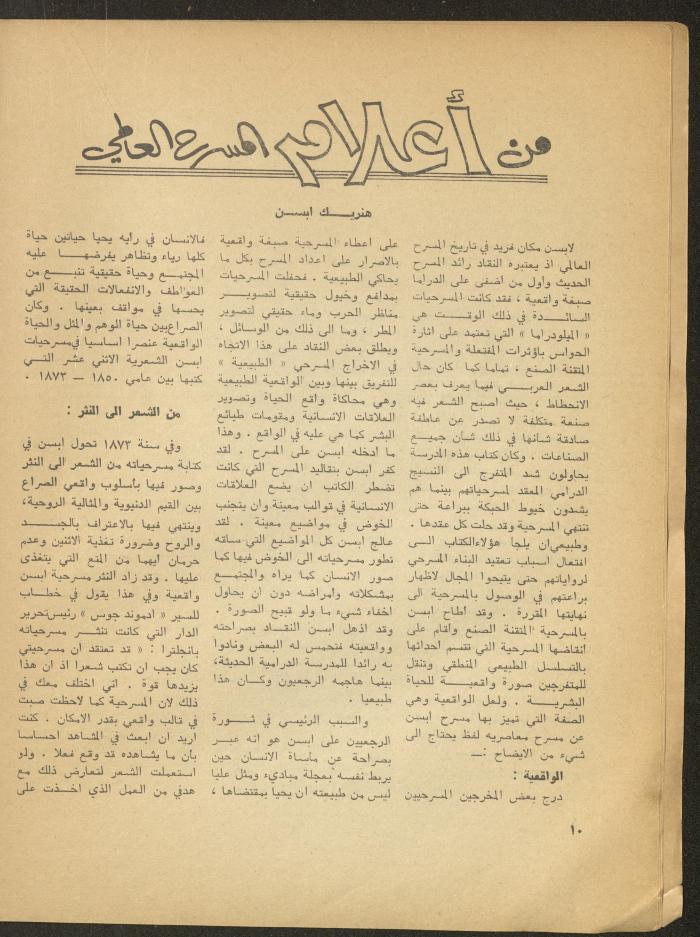 من أعلام المسرح العالمي
هنريك ابسن
لابسن مكان فريد في تاريخ المسرح
العالمي اذ يعتبره النقاد رائد المسرح
الحديث واول من اضفى على الدراما
صبغة واقعية ، فقد كانت المسرحيات
السائدة في ذلك الوقت هي
« الميلودراما » التي تعتمد على اثارة
الحواس باؤثرات المفتعلة والمسرحية
المتقنة الصنع ، تماما كما كان حال
الشعر العربي فيما يعرف بعصر
الانحطاط ، حيث اصبح الشعر فيه
صنعة متكلفة لا تصدر عن عاطفة
صادقة شأنها في ذلك شأن جميع
الصناعات . وكان كتاب هذه المدرسة
يحاولون شد المتفرج الى النسيج
الدرامي المعقد لمسرحياتهم بينما هم
يشدون خيوط الحبكة ببراعة حتى
تنتهي المسرحية وقد حلت كل عقدها .
وطبيعي ان يلجأ هؤلاء الكتاب الى
افتعال اسباب تعقيد البناء المسرحي
لرواياتهم حتى يتيحوا المجال لاظهار
براعتهم في الوصول بالمسرحية الى
نهايتها المقررة . وقد اطاح ابسن
بالمسرحية المتقنة الصنع واقام على
أنقاضها المسرحية التي تتسم احداثها
بالتسلسل الطبيعي المنطقي وتنقل
للمتفرجين صورة واقعية للحياة
البشرية . ولعل الواقعية وهي
الصفة التي تميز بها مسرح ابسن
عن مسرح معاصريه لفظ يحتاج الى
شيء من الايضاح :ـ
الواقعية :
درج بعض المخرجين المسرحيين
على اعطاء المسرحية صبغة واقعية
بالاصرار على اعداد المسرح بكل ما
يحاكي الطبيعية . فحفلت المسرحيات
بمدافع وخيول حقيقية لتصوير
مناظر الحرب وماء حقيقي لتصوير
المطر ، وما الى ذلك من الوسائل ،
ويطلق بعض النقاد على هذا الاتجاه
في الاخراج المسرحي « الطبيعية »
للتفريق بينها وبين الواقعية الطبيعية
وهي محاكاة واقع الحياة وتصوير
العلاقات الانسانية ومقومات طبائع
البشر كما هي عليه في الواقع . وهذا
ما ادخله ابسن على المسرح . لقد
كفر ابسن بتقاليد المسرح التي كانت
تضطر الكاتب ان يضع العلاقات
الانسانية في قوالب معينة وان يتجنب
الخوض في مواضيع معينة . لقد
عالج ابسن كل المواضيع التي ساقه
تطور مسرحياته الى الخوض فيها كما
صور الانسان كما يراه والمجتمع
بمشكلاته وأمراضه دون ان يحاول
اخفاء شيء ما ولو قبيح الصورة .
وقد اذهل ابسن النقاد بصراحته
وواقعيته فتحمس له البعض ونادوا
به رائدا للمدرسة الدرامية الحديثة،
بينما هاجمه الرجعيون وكان هذا
طبيعيا .
والسبب الرئيسي في ثورة
الرجعيين على ابسن هو انه عبر
بصراحة عن مأساة الانسان حين
يربط نفسه بعجلة مباديء ومثل عليا
ليس من طبيعته ان يحيا بمقتضاها ،
فالانسان في رأيه يحيا حياتين حياة
كلها رياء وتظاهر يفرضها عليه
المجتمع وحياة حقيقية تنبع من
العواطف والانفعالات الحقيقة التي
يحسها في مواقف بعينها . وكان
الصراع بين حياة الوهم والمثل والحياة
الواقعية عنصرا اساسيا في مسرحيات
ابسن الشعرية الاثني عشر التي
كتبها بين عامي ١٨٥٠ — ١٨٧٣ .
من الشعر الى النثر :
وفي سنة ١٨٧٣ تحول ابسن في
كتابة مسرحياته من الشعر الى النثر
وصور فيها بأسلوب واقعي الصراع
بين القيم الدنيوية والمثالية الروحية،
وينتهي فيها بالاعتراف بالجسد
والروح وضرورة تغذية الاثنين وعدم
حرمان أيهما من المتع التي يتغذى
عليها . وقد زاد النثر مسرحية ابسن
واقعية وفي هذا يقول في خطاب
للسير « ادموند جوس » رئيس تحرير
الدار التي كانت تنشر مسرحياته
بانجلترا : « قد تعتقد ان مسرحيتي
كان يجب ان تكتب شعرا اذ ان هذا
يزيدها قوة . اني اختلف معك في
ذلك لان المسرحية كما لاحظت صبت
في قالب واقعي بقدر الامكان . كنت
اريد ان ابعث في المشاهد احساسا
بأن ما يشاهده قد وقع فعلا . ولو
استعملت الشعر لتعارض ذلك مع
هدفي من العمل الذي اخذت على
١٠